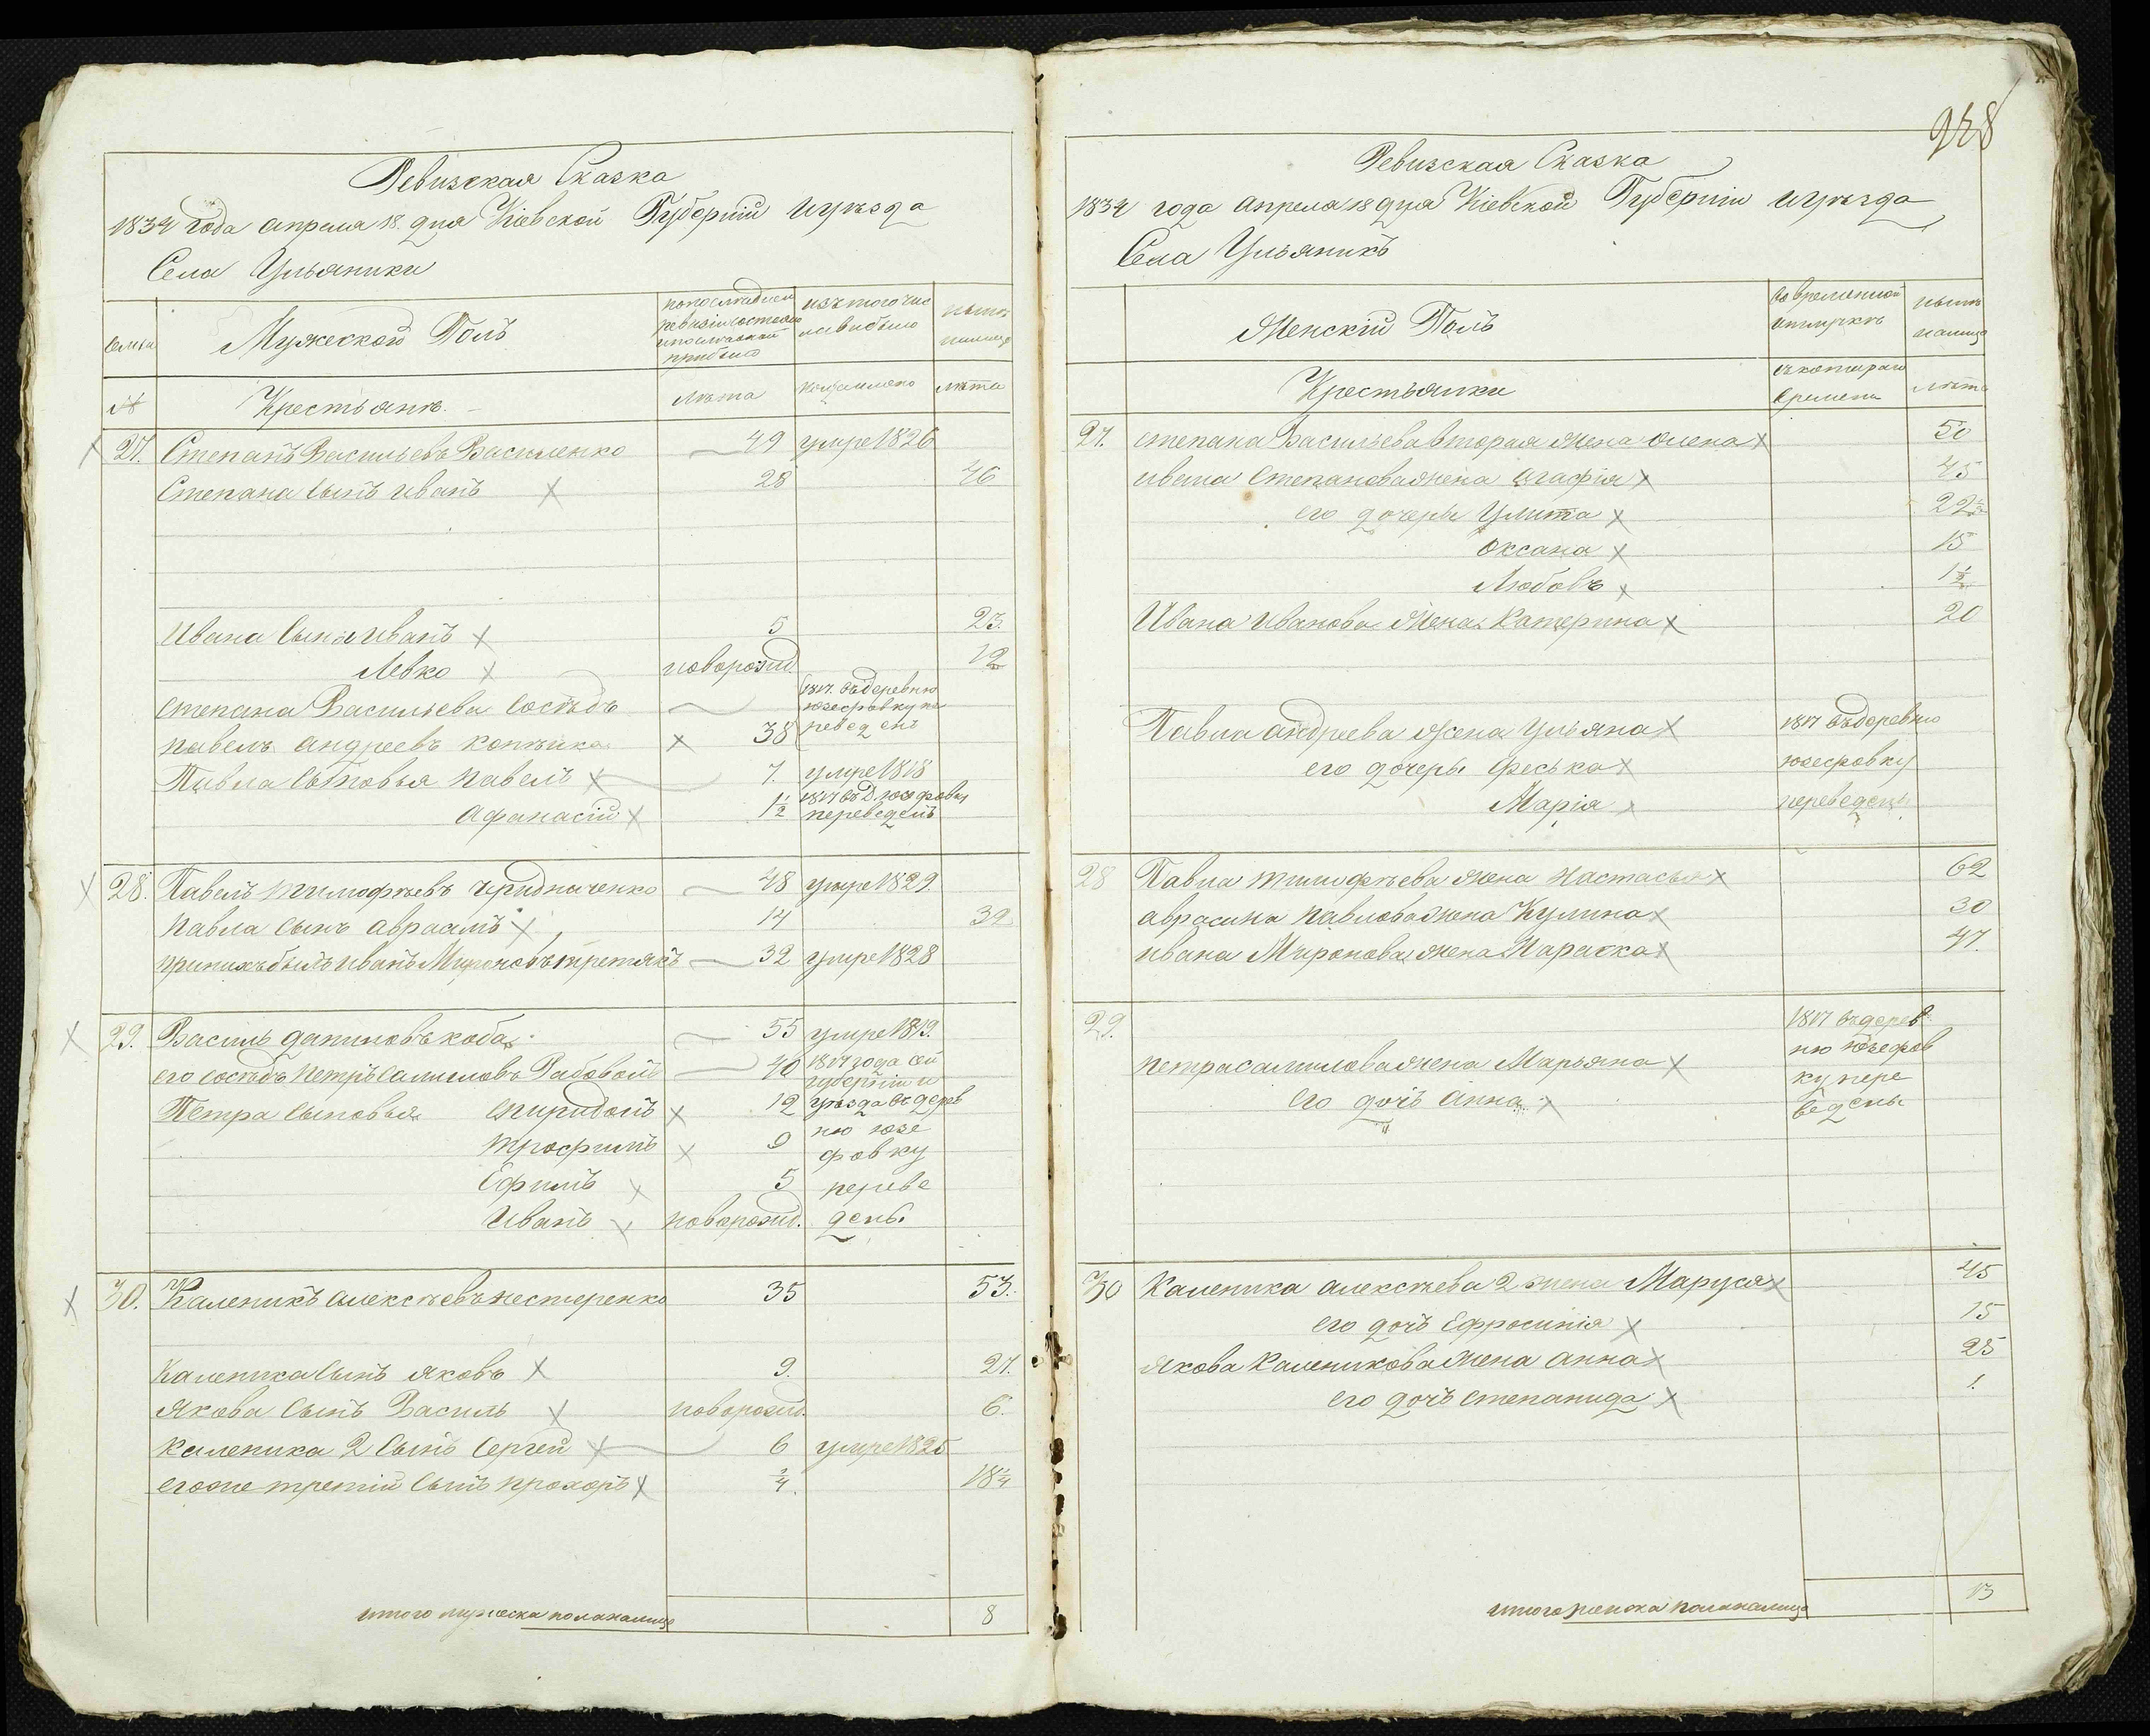 Ревизская Сказка
1834 года апреля 18. дня Кіевской Губерніи и уѣзда
Села Ульяники
семьи
Мужеской Полъ
по последней ревизіи состояло и после оной прибыло
изъ того числа выбыло
ныне на лицо
№
Крестьяне.
Лѣта
когда именно
лѣта
27. Степанъ Васильевъ Василенко 49 умре 1826
Степана сынъ Иванъ 28 46
Ивана сынъ Иванъ 5 23.
Левко новорожд. 19
Степана Васильева соседъ
1817. въ деревню
юзефовку пе
реведенъ
павелъ андреевъ копейка 38
Павла сыновья павелъ 7. умре 1818
Афанасій 1½ 1817 въ д. юзефовку
переведенъ
28. Павелъ тимофѣевъ чуидниченко 48 умре 1829.
павла сынъ авраамъ 14 32
при нихъ былъ иванъ Мироновъ третякъ 32 умре 1828
29. Василь даниловъ коба 55 умре 1819.
его соседъ петръ самиловъ Рабовой 40 1817 года сей
губерніи и
Петра сыновья спиридонъ 12 уѣзда въ дерев
трофимъ 9 ню юзе
фовку
Ефимъ 5 переве
Иванъ новорожд. дены.
30. Каленикъ алексѣевъ нестеренко 35 53.
каленика сынъ яковъ 9. 27.
якова сынъ Василь новорожд. 6.
каленика 2 сынъ сергей 6 умре 1825
егоже третій сынъ прохоръ ¾. 18¾
итого мужеска пола налицо 8
928
Ревизская Сказка
1834 года апреля 18 дня Кіевской Губерніи и уѣзда
Села Ульяникъ
Женскій Полъ
во временной отлучкѣ
ныне налицо
Крестьянки
съ котораго времени
лѣта
27. степана Васильева вторая жена олена 50
ивана степанова жена агафія 45
его дочери Улита 22½
Оксана 15
Любовъ 1½
Ивана Иванова жена катерина 20
Павла андреева жена Ульяна 1817 въ деревню
его дочери феська юзефовку
Марія переведены
28 Павла тимофѣева жена настасья 62
авраама павлова жена Кулина 30
ивана Миронова жена параска 47.
29. 1817 въ дерев
ню юзефов
петра самилова жена Марьяна
ку пере
его дочъ анна ведены
30 Каленика алексѣева 2 жена Маруся 45
его дочъ Ефросинія 15
якова каленикова жена анна 25
его дочъ степанида 1.
итого женска пола налицо 13